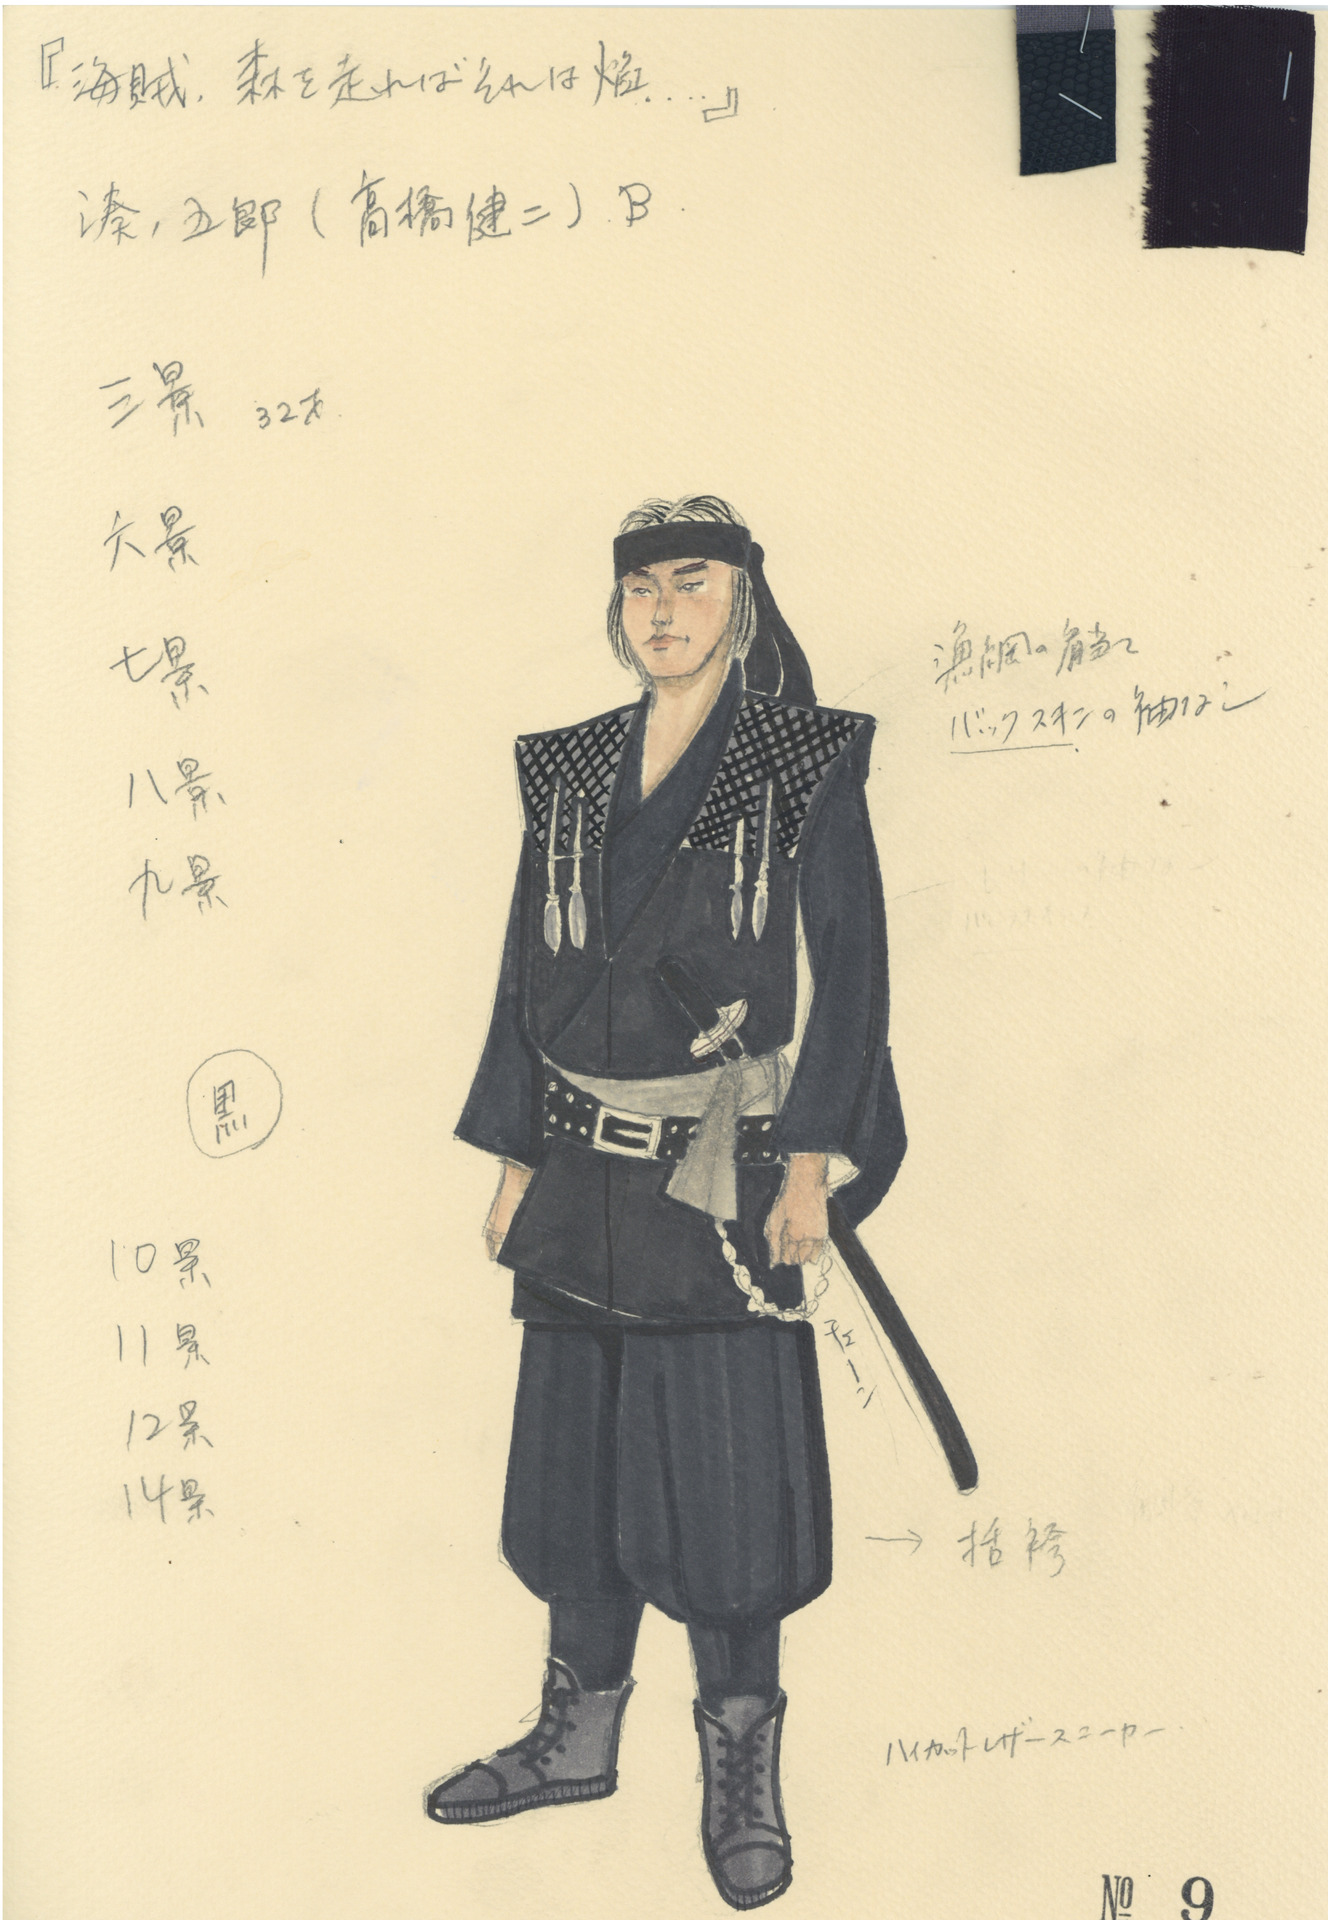 『海賊、森を走ればそれは焔……』
湊、五郎(高橋健二)B
三景 32才
六景
七景
八景
九景
黒
10景
11景
12景
14景
漁網の肩当て
バックスキンの袖なし
チェーン
→ 括袴
ハイカットレザースニーカー
№ 9